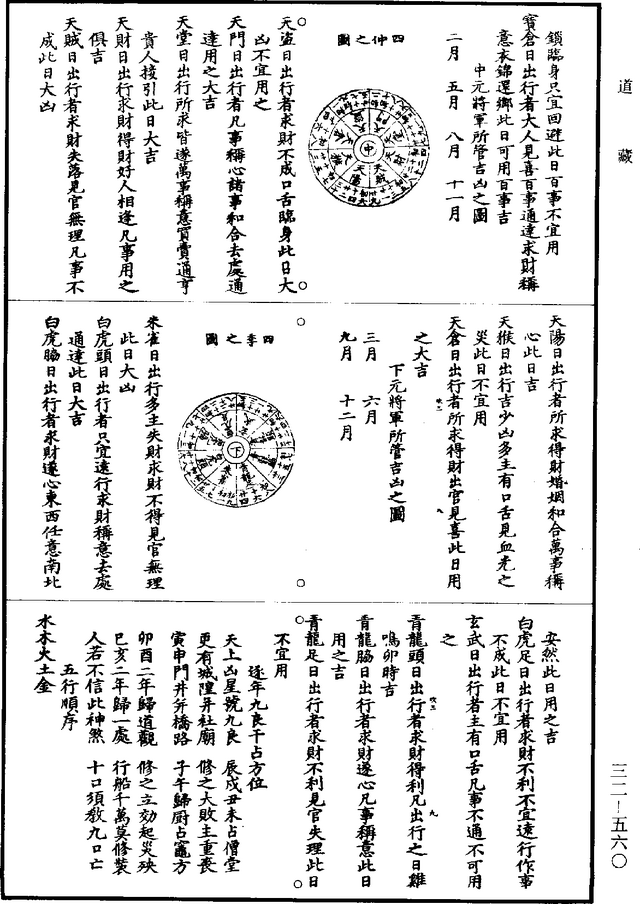 道藏
鎖臨身只宜回避此日百事不宜用
寶倉日出行者大人見喜百事通達求財稱
意衣錦還鄉此日可用百事吉
中元將軍所管吉凶之圖
二月 五月 八月 十一月
四仲之圖
中
天盜日出行者求財不成口舌臨身此日大
凶不宜用之
天門日出行者凡事稱心諸事和合去處通
達用之大吉
天堂日出行所求皆遂萬事稱意買賣通亨
貴人接引此日大吉
天財日出行求財得財好人相逢凡事用之
俱吉
天賊日出行者求財失落見官無理凡事不
成此日大凶
天陽日出行者所求得財婚姻和合萬事稱
心此日吉
天猴日出行吉少凶多主有口舌見血光之
災此日不宜用
天倉日出行者所求得財出官見喜此日用
之大吉
下元將軍所管吉凶之圖
三月 六月
九月 十二月
四季之圖
下
朱雀日出行多主失財求財不得見官無理
此日大凶
白虎頭日出行者只宜遠行求財稱意去處
通達此日大吉
白虎脇日出行者求財遂心東西任意南北
安然此日用之吉
白虎足日出行者求財不利不宜遠行作事
不成此日不宜用
玄武日出行者主有口舌凡事不通不可用
之
青龍頭日出行者求財得利凡出行之日雞
鳴卯時吉
青龍脇日出行者求財遂心凡事稱意此日
用之吉
青龍足日出行者求財不利見官失理此日
不宜用
逐年九良干占方位
天上凶星號九良 辰戌丑未占僧堂
更有城隍并社廟 修之大敗主重喪
寅申門井并橋路 子午歸厨占竈方
卯酉二年歸道觀 修之立効起災殃
巳亥二年歸一處 行船千萬莫修裝
人若不信此神煞 十口須教九口亡
五行順序
水木火土金
三二－五六〇